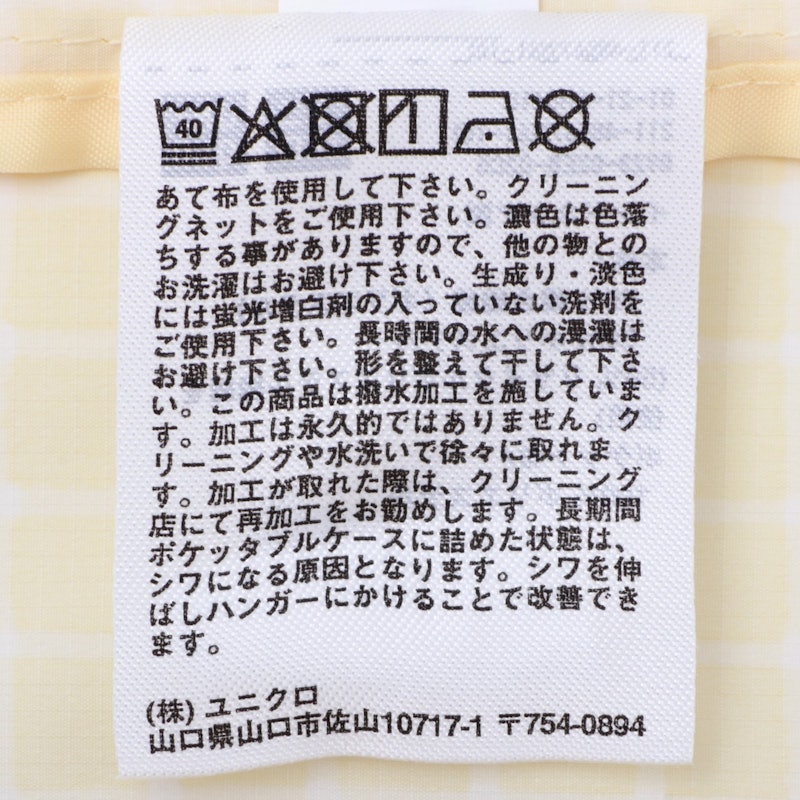 40
あて布を使用して下さい。クリーニン
グネットをご使用下さい。濃色は色落
ちする事がありますので、他の物との
お洗濯はお避け下さい。生成り・淡色
には蛍光増白剤の入っていない洗剤を
ご使用下さい。長時間の水への浸漬は
お避け下さい。形を整えて干して下さ
い。この商品は撥水加工を施していま
す。加工は永久的ではありません。ク
リーニングや水洗いで徐々に取れま
す。加工が取れた際は、クリーニング
店にて再加工をお勧めします。長期間
ポケッタブルケースに詰めた状態は、
シワになる原因となります。シワを伸
ばしハンガーにかけることで改善でき
ます。
(株) ユニクロ
山口県山口市佐山10717-1 〒754-0894